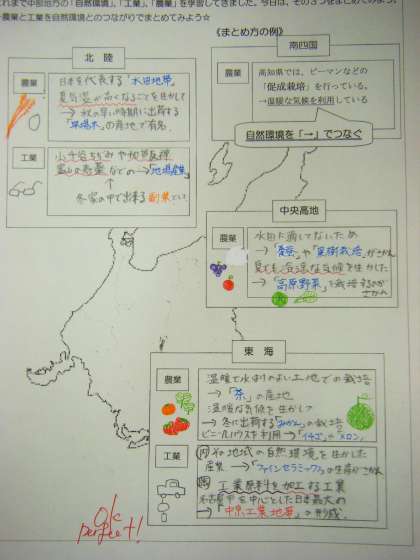 これまで中部地方の「自然環境」、「工業」、「農業」を学習してきました。今日は、その3つをまとめてみよう。
農業と工業を自然環境とのつながりでまとめてみよう☆
《まとめ方の例》
北 陸
農業
日本を代表する「水田地帯」
夏気温が高くなることを生かして
→ 秋の早い時期に出荷する
「早場米」の産地で有名
工業
小千谷ちぢみや
富山の売薬などの→「地場産業」
↑
冬家の中で出来る副業として
南四国
農業
高知県では、ピーマンなどの
「促成栽培」を行っている。
→温暖な気候を利用している
自然環境を「→」でつなぐ
中央高地
農業
水田に適してないため
→「養蚕」や「果樹栽培」がさかん
夏でも冷涼な気候を生かした
→「高原野菜」を栽培するのが
さかん
東 海
農業
温暖で水はけのよい土地での栽培
→「茶」の産地
温暖な気候を生かして
→ 冬に出荷する「みかん」の栽培
ビニールハウスを利用→「イチゴ」「メロン」
工業
内 その地域の自然環境を生かした
産業 →「ファインセラミックス」の生産がさかん
工業原料を加工する工業
名古屋を中心とした日本最大の
→「中京工業地帯」の形成。
ok
perfect!